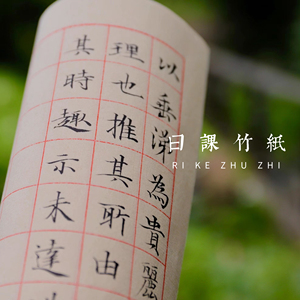 以垂涕為貴麗
理也推其所由
其時趣亦未達
日課竹紙
RI KE ZHU ZHI